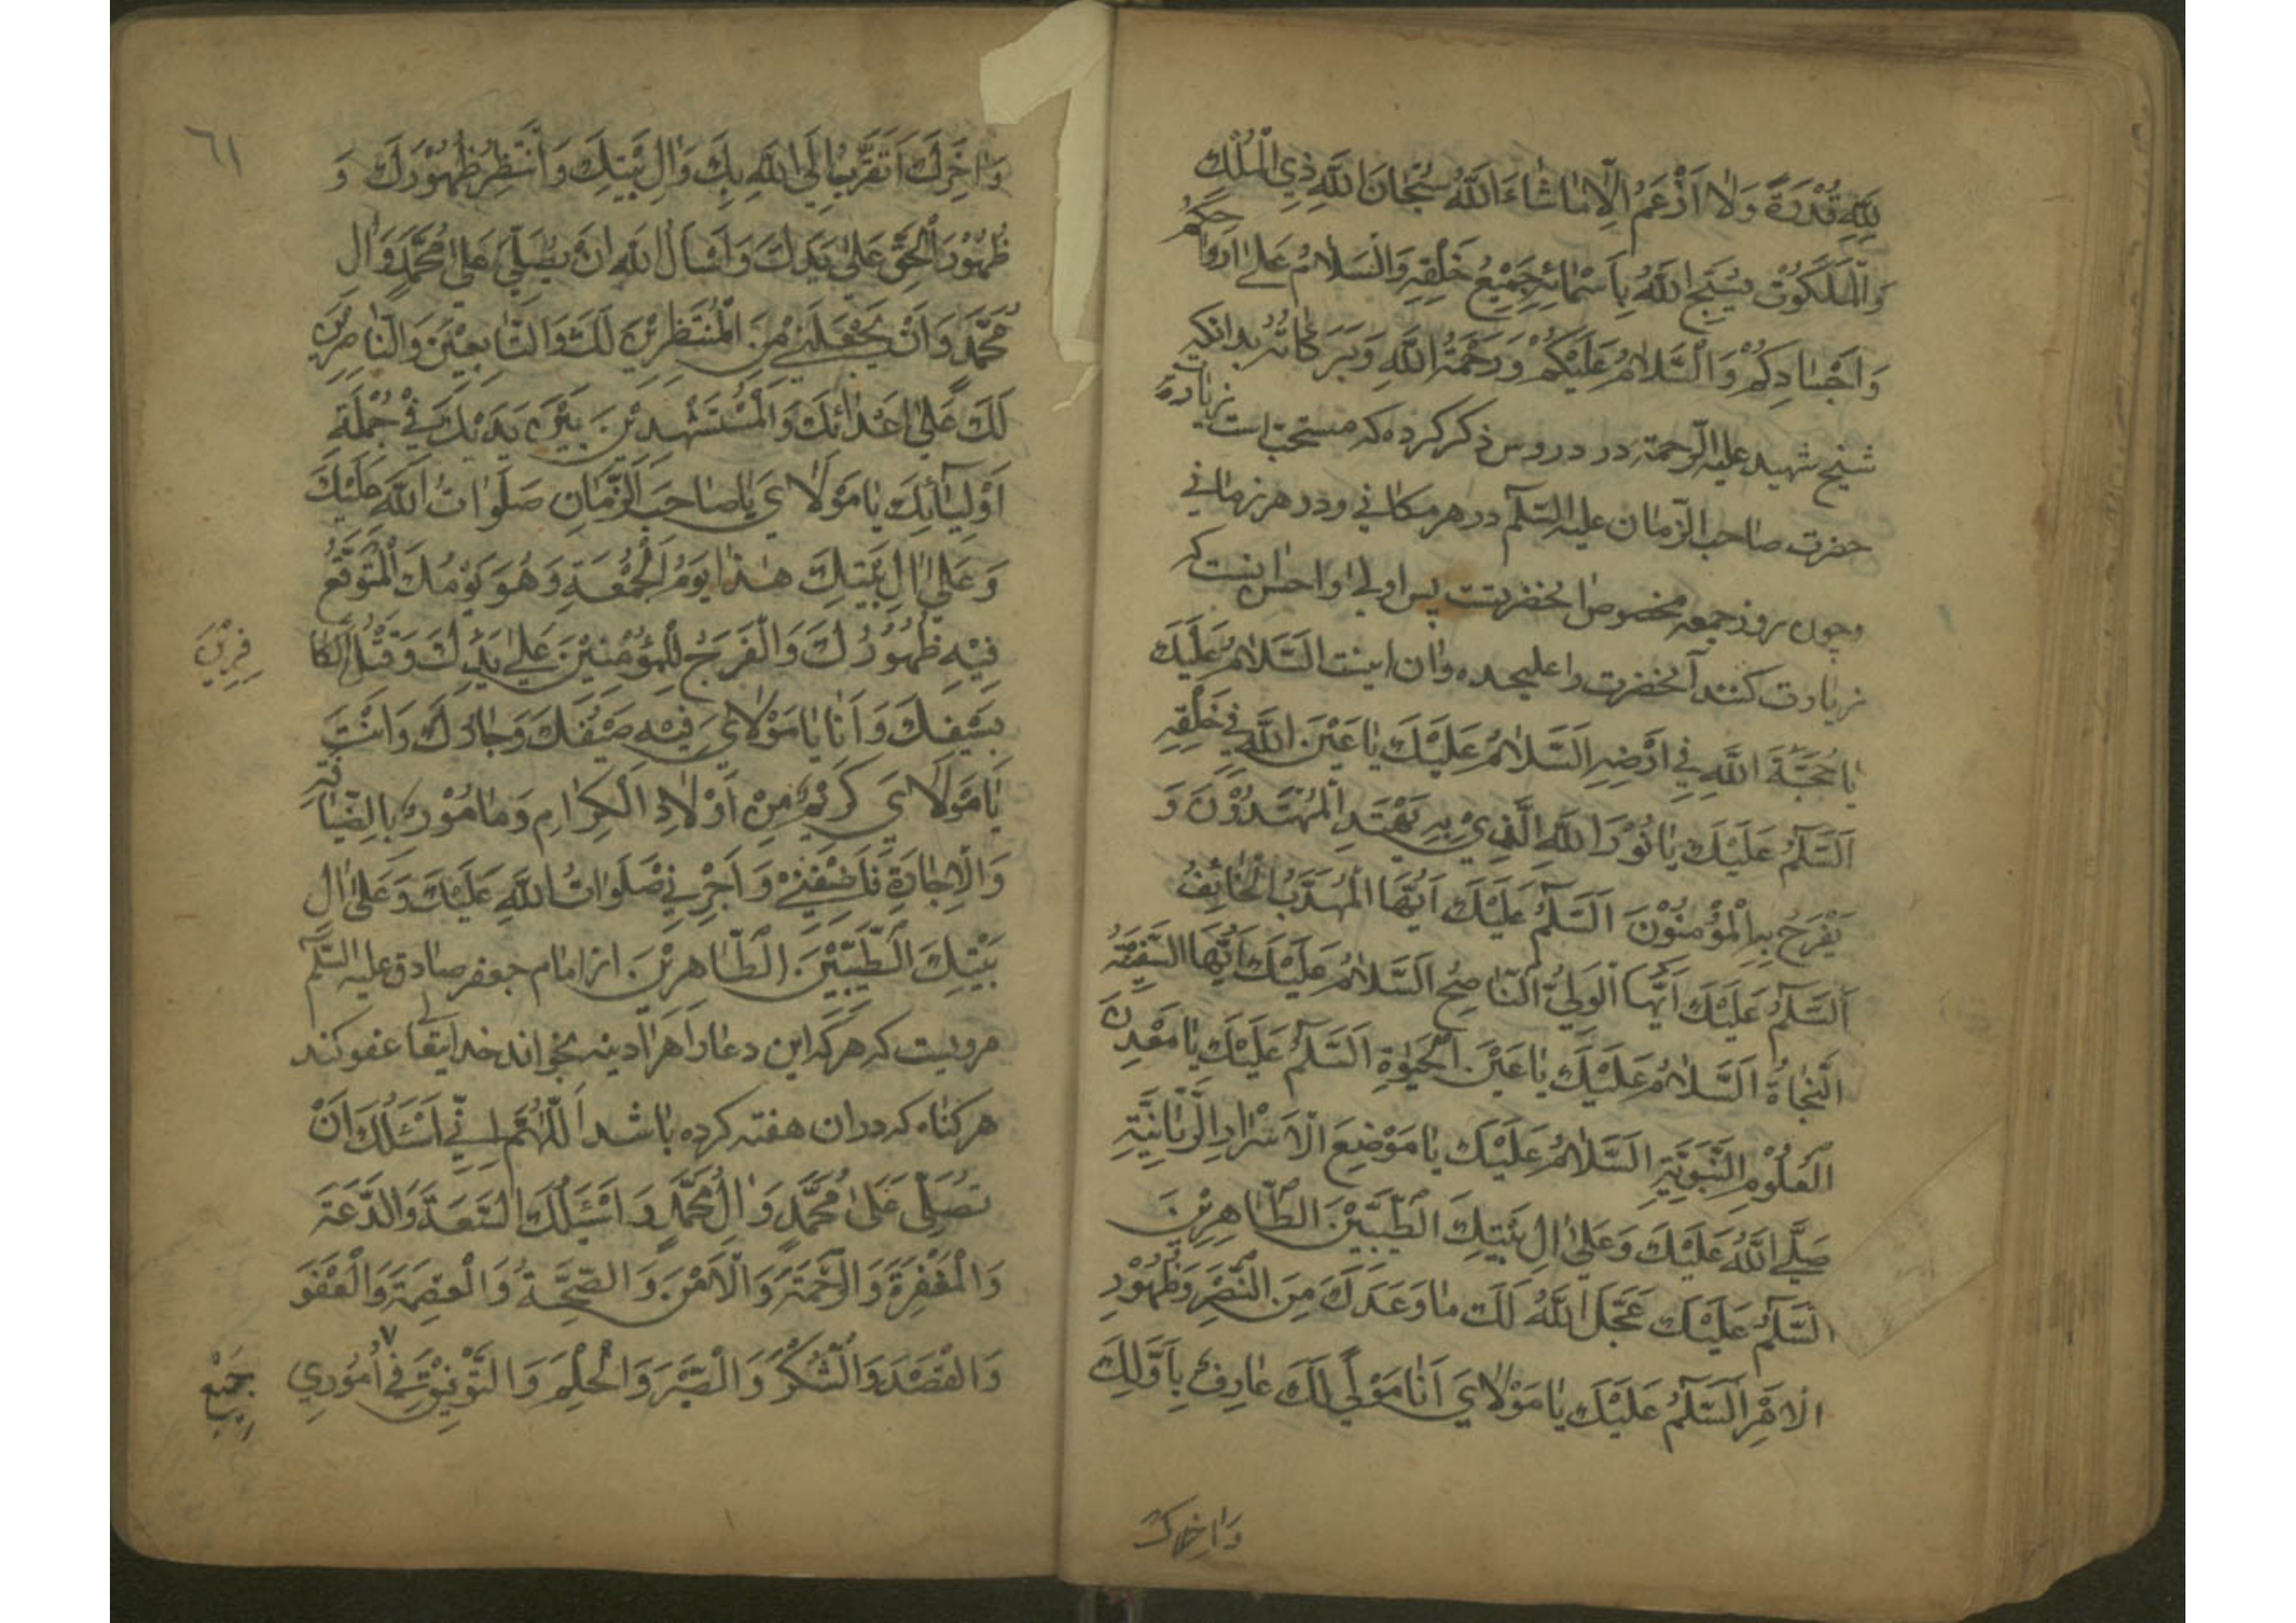 لِلّٰهِ قُدْرَةً وَلٰا اَزْعَمُ اِلّٰا مٰا شٰاءَ اللّٰهُ سُبْحٰانَ اللّٰهِ ذِي الْمُلْكِ
وَالْمَلَكُوْتِ يُسَبِّحُ اللّٰهَ بِاَسْمٰائِهِ جَمِيْعُ خَلْقِهِ وَالسَّلٰامُ عَلٰى اَرْوٰاحِكُمْ
وَاَجْسٰادِكُمْ وَالسَّلٰامُ عَلَيْكُمْ وَرَحْمَةُ اللّٰهِ وَبَرَكٰاتُهُ بدانكه
شيخ شهيد عليه الرّحمة در دروس ذكر كرده كه مستحبّ است زيارة
حضرت صاحب الزّمان عليه السّلم در هر مكانى ودر هر زمانى
وچون روز جمعه مخصوص آنحضرتست پس اولى واحسن اينست كه
زيارت كنند آنحضرت را عليحده وان اينست اَلسَّلٰامُ عَلَيْكَ
يٰا حُجَّةَ اللّٰهِ فِي اَرْضِهِ اَلسَّلٰامُ عَلَيْكَ يٰا عَيْنَ اللّٰهِ فِي خَلْقِهِ
اَلسَّلٰمُ عَلَيْكَ يٰا نُوْرَ اللّٰهِ الَّذِيْ بِهِ يَهْتَدِ الْمُهْتَدُوْنَ وَ
يَفْرَحُ بِهِ الْمُؤْمِنُوْنَ اَلسَّلٰمُ عَلَيْكَ اَيُّهَا الْمُهَذَّبُ الْخٰائِفُ
اَلسَّلٰمُ عَلَيْكَ اَيُّهَا الْوَلِيُّ النّٰاصِحُ اَلسَّلٰامُ عَلَيْكَ اَيُّهَا السَّفِيْنَةُ
النَّجٰاةُ اَلسَّلٰامُ عَلَيْكَ يٰا عَيْنَ الْحَيٰوةِ اَلسَّلٰمُ عَلَيْكَ يٰا مَعْدِنَ
الْعُلُوْمِ النَّبَوِيَّةِ اَلسَّلٰامُ عَلَيْكَ يٰا مَوْضِعَ الْاَسْرٰارِ الرَّبّٰانِيَّةِ
صَلَّى اللّٰهُ عَلَيْكَ وَعَلٰى اٰلِ بَيْتِكَ الطَّيِّبِيْنَ الطّٰاهِرِيْنَ
اَلسَّلٰمُ عَلَيْكَ عَجَّلَ اللّٰهُ لَكَ مٰا وَعَدَكَ مِنَ النَّصْرِ وَظُهُوْرِ
الْاَمْرِ اَلسَّلٰمُ عَلَيْكَ يٰا مَوْلٰايَ اَنٰا مَوْلًى لَكَ عٰارِفٌ بِاَوَّلِكَ
وَاٰخِرِكَ
٦١
وَاٰخِرِكَ اَتَقَرَّبُ اِلَى اللّٰهِ بِكَ وَاٰلِ بَيْتِكَ وَاَنْتَظِرُ ظُهُوْرَكَ وَ
ظُهُوْرَ الْحَقِّ عَلٰى يَدِكَ وَاَسْاَلُ اللّٰهَ اَنْ يُصَلِّيَ عَلٰى مُحَمَّدٍ وَاٰلِ
مُحَمَّدٍ وَاَنْ يَجْعَلَنِيْ مِنَ الْمُنْتَظِرِيْنَ لَكَ وَالتّٰابِعِيْنَ وَالنّٰاصِرِيْنَ
لَكَ عَلٰى اَعْدٰائِكَ وَالْمُسْتَشْهِدِيْنَ بَيْنَ يَدَيْكَ فِيْ جُمْلَةِ
اَوْلِيٰائِكَ يٰا مَوْلٰايَ يٰا صٰاحِبَ الزَّمٰانِ صَلَوٰاتُ اللّٰهِ عَلَيْكَ
وَعَلٰى اٰلِ بَيْتِكَ هٰذٰا يَوْمُ الْجُمُعَةِ وَهُوَ يَوْمُكَ الْمُتَوَقَّعُ
فِيْهِ ظُهُوْرُكَ وَالْفَرَجُ لِلْمُؤْمِنِيْنَ عَلٰى يَدِكَ وَقَتْلُ الْكٰا
فِرِيْنَ
بِسَيْفِكَ وَاَنٰا يٰا مَوْلٰايَ فِيْهِ ضَيْفُكَ وَجٰارُكَ وَاَنْتَ
يٰا مَوْلٰايَ كَرِيْمٌ مِنْ اَوْلٰادِ الْكِرٰامِ وَمَاْمُوْرٌ بِالضِّيٰافَةِ
وَالْاِجٰارَةِ فَاَضِفْنِيْ وَاَجِرْنِيْ صَلَوٰاتُ اللّٰهِ عَلَيْكَ وَعَلٰى اٰلِ
بَيْتِكَ الطَّيِّبِيْنَ الطّٰاهِرِيْنَ از امام جعفر صادق عليه السّلم
مرويست كه هر كه اين دعا را هر ادينه بخواند خدايتعالى عفو كند
هر كناه كه در ان هفته كرده باشد اَللّٰهُمَّ اِنِّيْ اَسْئَلُكَ اَنْ
تُصَلِّيَ عَلٰى مُحَمَّدٍ وَاٰلِ مُحَمَّدٍ وَاَسْئَلُكَ السَّعَةَ وَالدَّعَةَ
وَالْمَغْفِرَةَ وَالرَّحْمَةَ وَالْاَمْنَ وَالصِّحَّةَ وَالْعِصْمَةَ وَالْعَفْوَ
وَالْقَصْدَ وَالشُّكْرَ وَالصَّبْرَ وَالْحِلْمَ وَالتَّوْفِيْقَ فِيْ ٧ اُمُوْرِي
جَمِيْعِ